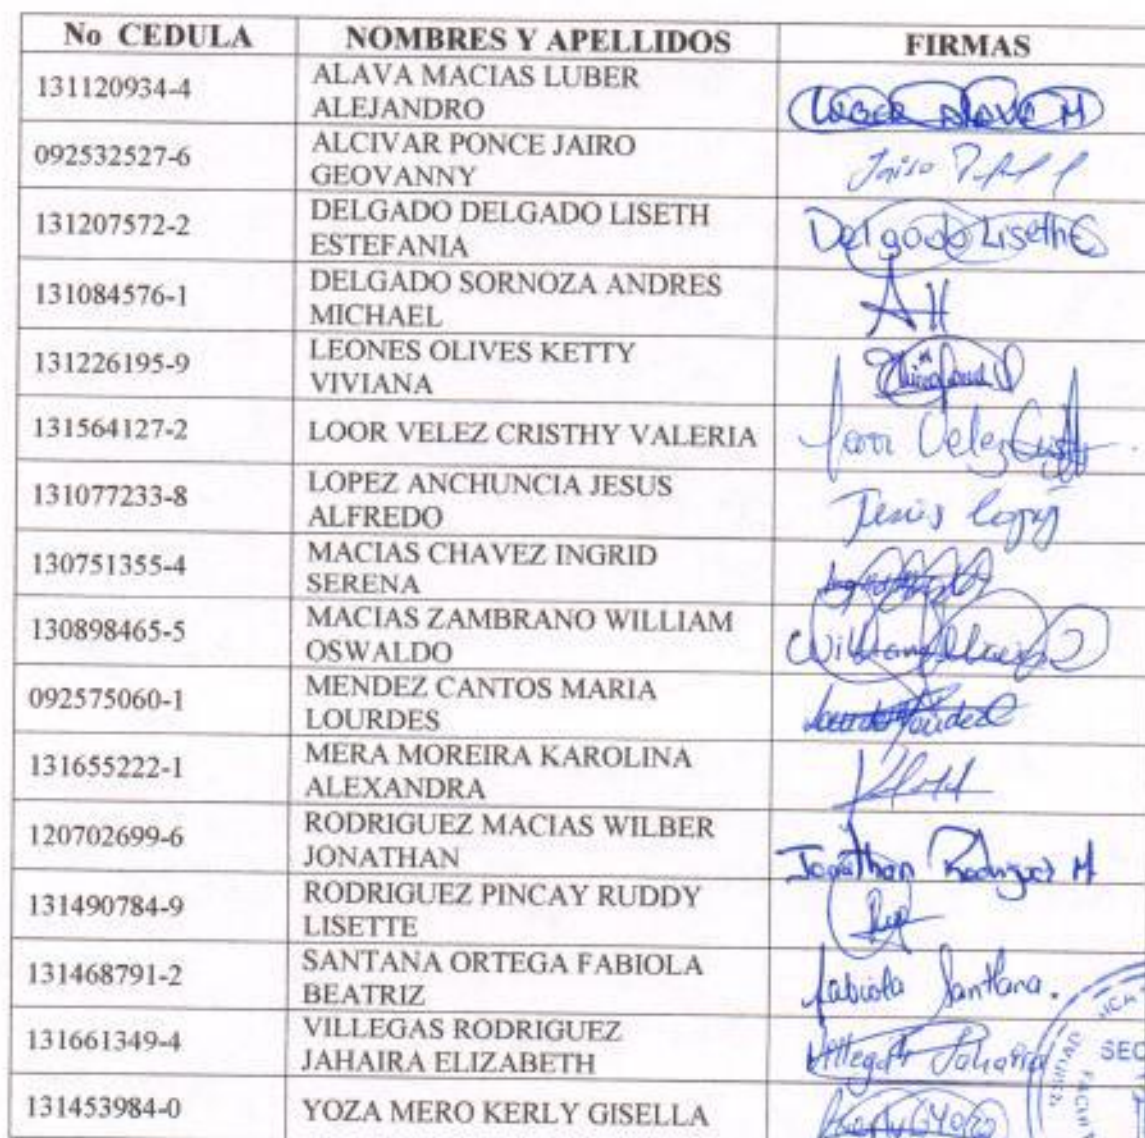 No CEDULA NOMBRES Y APELLIDOS FIRMAS
131120934-4 ALAVA MACIAS LUBER
ALEJANDRO
LUBER ALAVA M
092532527-6 ALCIVAR PONCE JAIRO
GEOVANNY
Jairo
131207572-2 DELGADO DELGADO LISETH
ESTEFANIA
Delgado Liseth E
131084576-1 DELGADO SORNOZA ANDRES
MICHAEL
131226195-9 LEONES OLIVES KETTY
VIVIANA
131564127-2 LOOR VELEZ CRISTHY VALERIA
Loor Velez Cristhy
131077233-8 LOPEZ ANCHUNCIA JESUS
ALFREDO
Jesús López
130751355-4 MACIAS CHAVEZ INGRID
SERENA
130898465-5 MACIAS ZAMBRANO WILLIAM
OSWALDO
William Macias Z
092575060-1 MENDEZ CANTOS MARIA
LOURDES
Lourdes Mendez C
131655222-1 MERA MOREIRA KAROLINA
ALEXANDRA
120702699-6 RODRIGUEZ MACIAS WILBER
JONATHAN
Jonathan Rodriguez M
131490784-9 RODRIGUEZ PINCAY RUDDY
LISETTE
131468791-2 SANTANA ORTEGA FABIOLA
BEATRIZ
Fabiola Santana.
131661349-4 VILLEGAS RODRIGUEZ
JAHAIRA ELIZABETH
Villegas Jahaira
SEC
131453984-0 YOZA MERO KERLY GISELLA
Kerly G Yoza